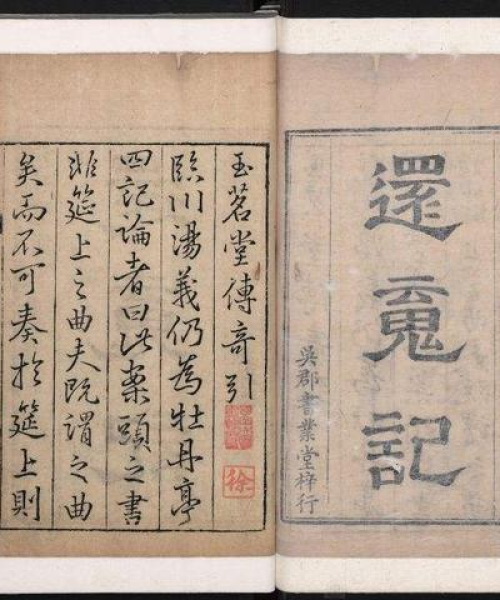 還魂記
吳郡書業堂梓行
玉茗堂傳奇引
徐
臨川湯義仍為牡丹亭
四記論者曰此案頭之書
非筵上之曲夫既謂之曲
矣而不可奏於筵上則